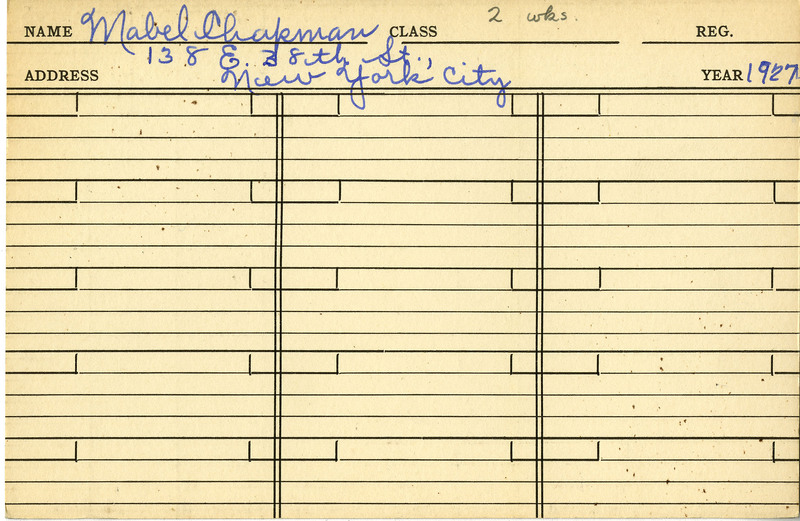 NAME Mabel Chapman CLASS 2 wks. REG.
ADDRESS 138 E. 38th St.,
New York City YEAR 1927